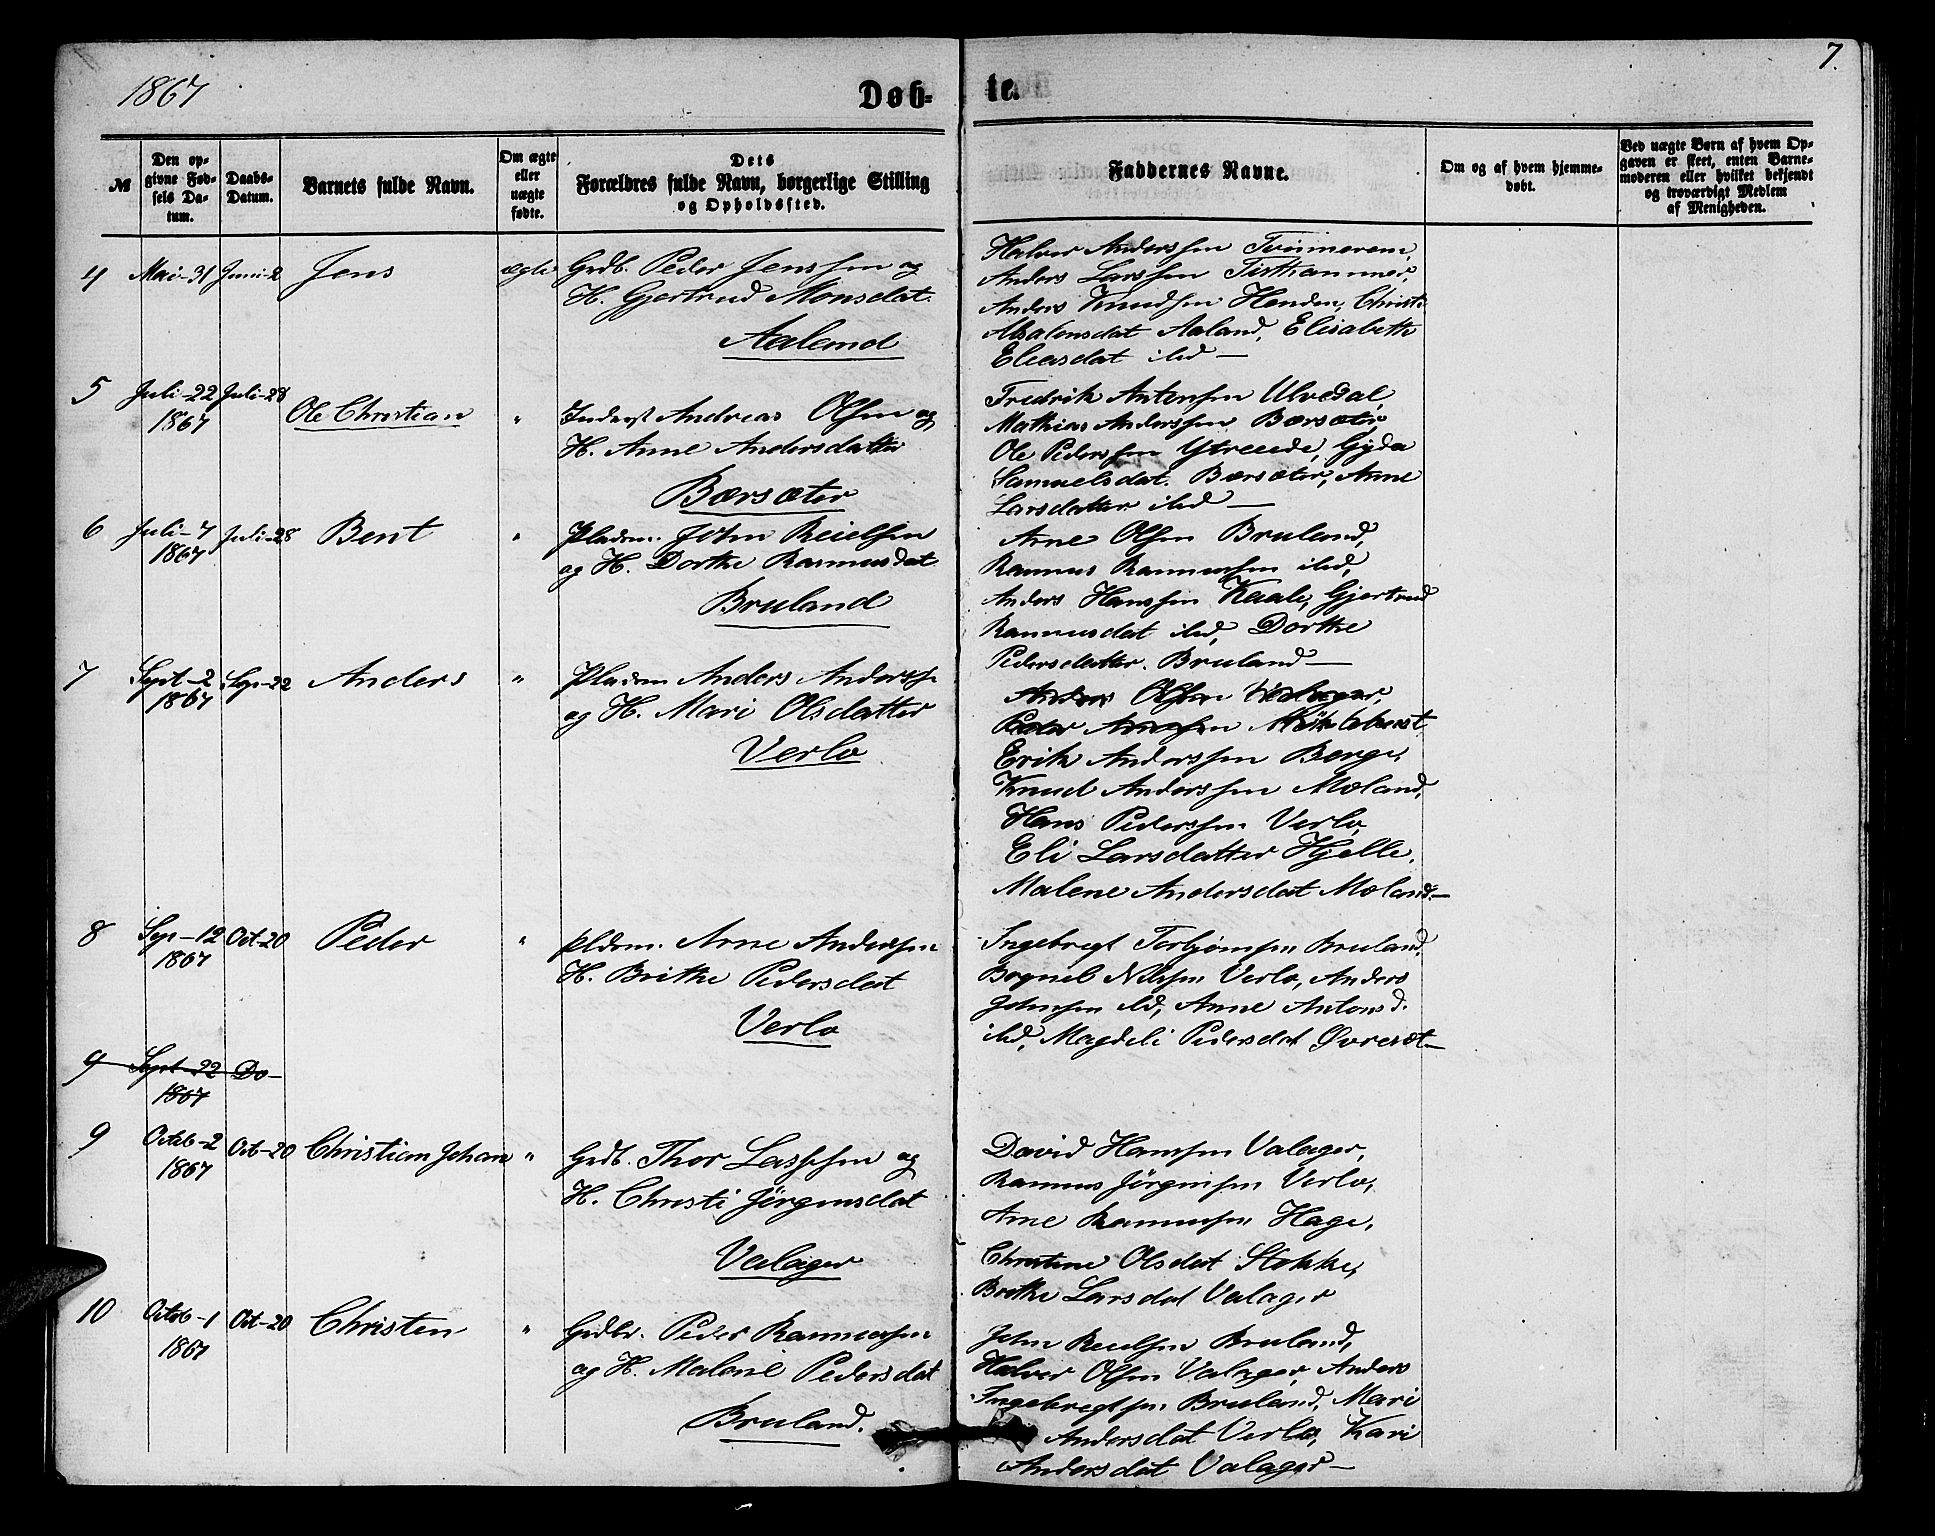 1867
Døb-
te.
7.
№
Den op-
givne Fød-
sels Da-
tum.
Daabs-
Datum.
Barnets fulde Navn.
Om ægte
eller
uægte
fødte.
Dets
Forældres fulde Navn, borgerlige Stilling
og Opholdssted.
Faddernes Navne.
Om og af hvem hjemme-
døbt.
Ved uægte Børn af hvem Op-
gaven er skeet, enten Barne-
moderen eller hvilket bekjendt
og troværdigt Medlem
af Menigheden.
4 Mai-31 Juni-2 Jens ægte Grdb. Peder Jenssen og
H. Gjertrud Monsdat.
Aaland
Halvor Anderssen
Anders Larssen
Anders Knudsen Henden, Christi
Absalonsdat Aaland, Elisabeth
Eliasdat ibd —
5 Juli-22 Juli-28
1867
Ole Christian " Inderst Andreas Olsen og
H. Anne Andersdatter
Bærsæter
Fredrik Antonsen Ulvedal,
Mathias Anderssen Bærsæter,
Ole Pederssen Ytreeide, Gyda
Samuelsdat. Bærsæter, Anne
Larsdatter ibd —
6 Juli-7 Juli-28 Bent " pladsm. John Reielsen
1867
og H. Dorthe Rasmusdat
Bruland
Arne Olsen Bruland,
Rasmus Rasmussen ibd,
Anders Hanssen Kaale, Gjertrud
Rasmusdat ibd, Dorthe
Pedersdatter. Bruland —
7 Sept-2 Sep-22 Anders " pladsm Anders Anderss
1867
og H. Mari Olsdatter
Verlo
Anders Olsen Valager,
Peder Arnessen Myklebust
Erik Anderssen Berge,
Knud Anderssen Moland,
Hans Pederssen Verlo,
Eli Larsdatter Hjelle,
Malene Andersdat Moland —
8 Sep-12 Oct-20 Peder " pldsm. Arne Anderssen
1867
H. Brithe Pedersdat
Verlo
Ingebregt Torbjørnsen Bruland,
Bognel Nilsen Verlo, Anders
Johnsen ibd, Anne Antonsd.
ibd, Magdeli Pedersdat Øvresæt —
9 Sept-22 Do —
1867
9 Octob-2 Oct-20 Christian Johan " Grdb. Thor Lassesen og
1867
H. Christi Jørgensdat
Valager
David Hanssen Valager,
Rasmus Jörgensen Verlo,
Arne Rasmussen Hage,
Christine Olsdat Stokke,
Brithe Larsdat Valager
10 Octob-1 Oct-20 Christen " Grdbr. Peder Rasmussen
1867
og H. Malene Pedersdat
Bruland.
John Reielsen Bruland,
Halvor Olsen Valager, Anders
Ingebregtsen Bruland, Mari
Andersdat Verlo, Kari
Andersdat Valager —